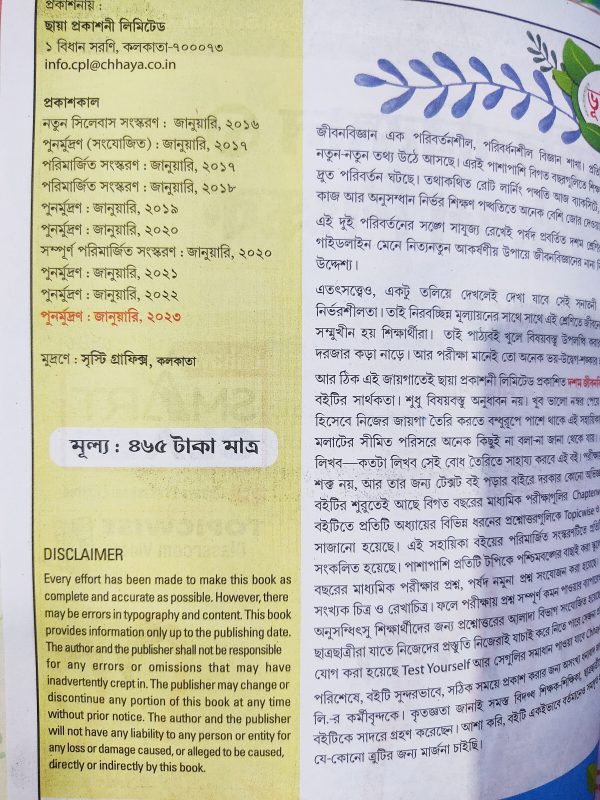 প্রকাশনায় :
ছায়া প্রকাশনী লিমিটেড
১ বিধান সরণি, কলকাতা-৭০০০৭৩
info.cpl@chhaya.co.in
প্রকাশকাল
নতুন সিলেবাস সংস্করণ : জানুয়ারি, ২০১৬
পুনর্মুদ্রণ (সংযোজিত) : জানুয়ারি, ২০১৭
পরিমার্জিত সংস্করণ : জানুয়ারি, ২০১৭
পরিমার্জিত সংস্করণ : জানুয়ারি, ২০১৮
পুনর্মুদ্রণ : জানুয়ারি, ২০১৯
পুনর্মুদ্রণ : জানুয়ারি, ২০২০
সম্পূর্ণ পরিমার্জিত সংস্করণ : জানুয়ারি, ২০২০
পুনর্মুদ্রণ : জানুয়ারি, ২০২১
পুনর্মুদ্রণ : জানুয়ারি, ২০২২
পুনর্মুদ্রণ : জানুয়ারি, ২০২৩
মুদ্রণে : সৃস্টি গ্রাফিক্স, কলকাতা
মূল্য : ৪৬৫ টাকা মাত্র
DISCLAIMER
Every effort has been made to make this book as
complete and accurate as possible. However, there
may be errors in typography and content. This book
provides information only up to the publishing date.
The author and the publisher shall not be responsible
for any errors or omissions that may have
inadvertently crept in. The publisher may change or
discontinue any portion of this book at any time
without prior notice. The author and the publisher
will not have any liability to any person or entity for
any loss or damage caused, or alleged to be caused,
directly or indirectly by this book.
জীবনবিজ্ঞান এক পরিবর্তনশীল, পরিবর্ধনশীল বিজ্ঞান শাখা।
নতুন-নতুন তথ্য উঠে আসছে। এরই পাশাপাশি বিগত বছরগুলিতে
দ্রুত পরিবর্তন ঘটছে। তথাকথিত রোট লার্নিং পদ্ধতি আজ ব্যাকসিটে,
কাজ আর অনুসন্ধান নির্ভর শিক্ষণ পদ্ধতিতে অনেক বেশি জোর দেওয়া
এই দুই পরিবর্তনের সঙ্গে সাযুজ্য রেখেই পর্ষদ প্রবর্তিত দশম
গাইডলাইন মেনে নিত্যনতুন আকর্ষণীয় উপায়ে জীবনবিজ্ঞানের নানা
উদ্দেশ্য।
এতৎসত্ত্বেও, একটু তলিয়ে দেখলেই দেখা যাবে সেই সনাতনী
নির্ভরশীলতা। তাই নিরবচ্ছিন্ন মূল্যায়নের সাথে সাথে এই শ্রেণিতে
সম্মুখীন হয় শিক্ষার্থীরা। তাই পাঠ্যবই খুলে বিষয়বস্তু উপলব্ধি
দরজার কড়া নাড়ে। আর পরীক্ষা মানেই তো অনেক ভয়-উদ্বেগ-শঙ্কার
আর ঠিক এই জায়গাতেই ছায়া প্রকাশনী লিমিটেড প্রকাশিত দশম
বইটির সার্থকতা। শুধু বিষয়বস্তু অনুধাবন নয়। খুব ভালো নম্বর
হিসেবে নিজের জায়গা তৈরি করতে বন্ধুরূপে পাশে থাকে এই
মলাটের সীমিত পরিসরে অনেক কিছুই না বলা-না জানা থেকে যায়।
লিখব—কতটা লিখব সেই বোধ তৈরিতে সাহায্য করবে এই বই।
শক্ত নয়, আর তার জন্য টেক্সট বই পড়ার বাইরে দরকার কোনো
বইটির শুরুতেই আছে বিগত বছরের মাধ্যমিক পরীক্ষাগুলির
বইটিতে প্রতিটি অধ্যায়ের বিভিন্ন ধরনের প্রশ্নোত্তরগুলিকে Topicwise
সাজানো হয়েছে। এই সহায়িকা বইয়ের পরিমার্জিত সংস্করণটিতে
সংকলিত হয়েছে। পাশাপাশি প্রতিটি টপিকে পশ্চিমবঙ্গের বাছাই করা
বছরের মাধ্যমিক পরীক্ষার প্রশ্ন, পর্ষদ নমুনা প্রশ্ন সংযোজন করা হয়েছে।
সংখ্যক চিত্র ও রেখাচিত্র। ফলে পরীক্ষায় প্রশ্ন সম্পূর্ণ কমন পাওয়ার
অনুসন্ধিৎসু শিক্ষার্থীদের জন্য প্রশ্নোত্তরের আলাদা বিভাগ সংযোজিত হয়েছে
ছাত্রছাত্রীরা যাতে নিজেদের প্রস্তুতি নিজেরাই যাচাই করে নিতে পারে
যোগ করা হয়েছে Test Yourself আর সেগুলির সমাধান পাওয়া যাবে
পরিশেষে, বইটি সুন্দরভাবে, সঠিক সময়ে প্রকাশ করার জন্য
লি.-র কর্মীবৃন্দকে। কৃতজ্ঞতা জানাই সমস্ত বিদগ্ধ শিক্ষক-শিক্ষিকা,
বইটিকে সাদরে গ্রহণ করেছেন। আশা করি, বইটি একইভাবে
যে-কোনো ত্রুটির জন্য মার্জনা চাইছি।